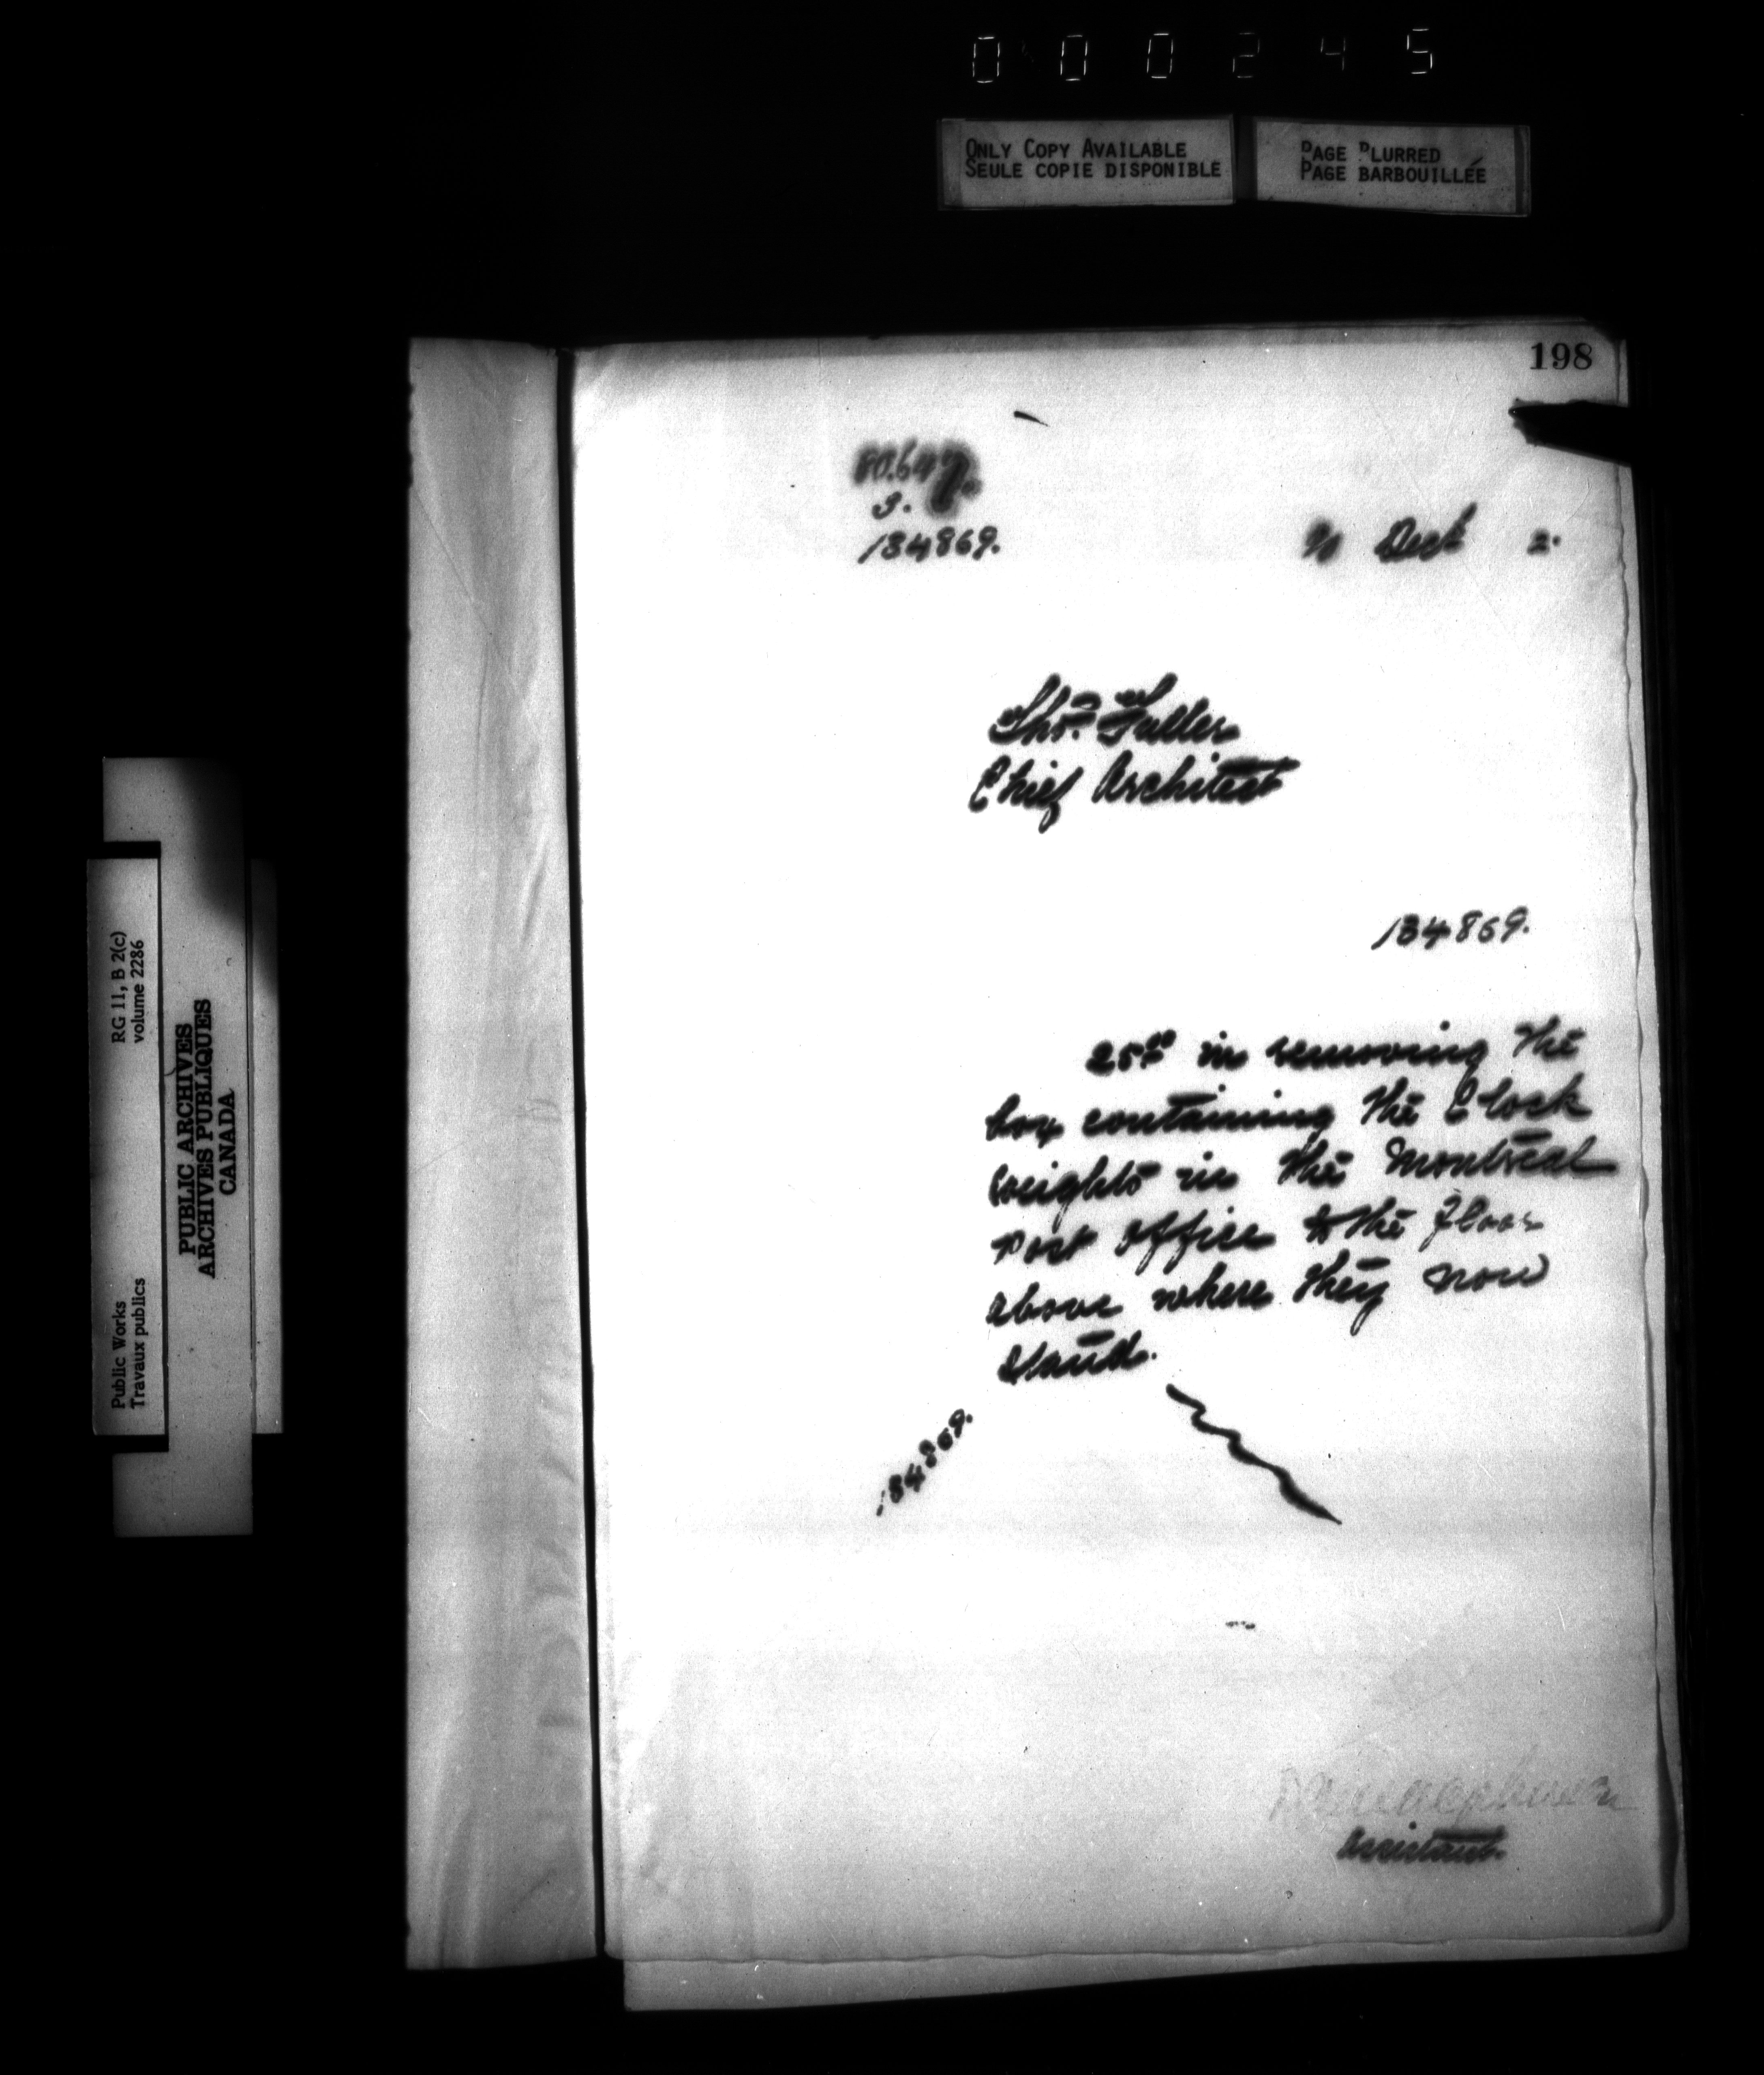 000245
ONLY COPY AVAILABLE
SEULE COPIE DISPONIBLE
PAGE BLURRED
PAGE BARBOUILLÉE
198
3.
134869.
Dec 2.
Thos. Fuller
Chief Architect
134869.
25.00 in removing the
box containing the Clock
weights in the Montreal
Post Office to the floor
above where they now
stand.
134869.
Assistant.
RG 11, B 2(c)
volume 2286
PUBLIC ARCHIVES
ARCHIVES PUBLIQUES
CANADA
Public Works
Travaux publics